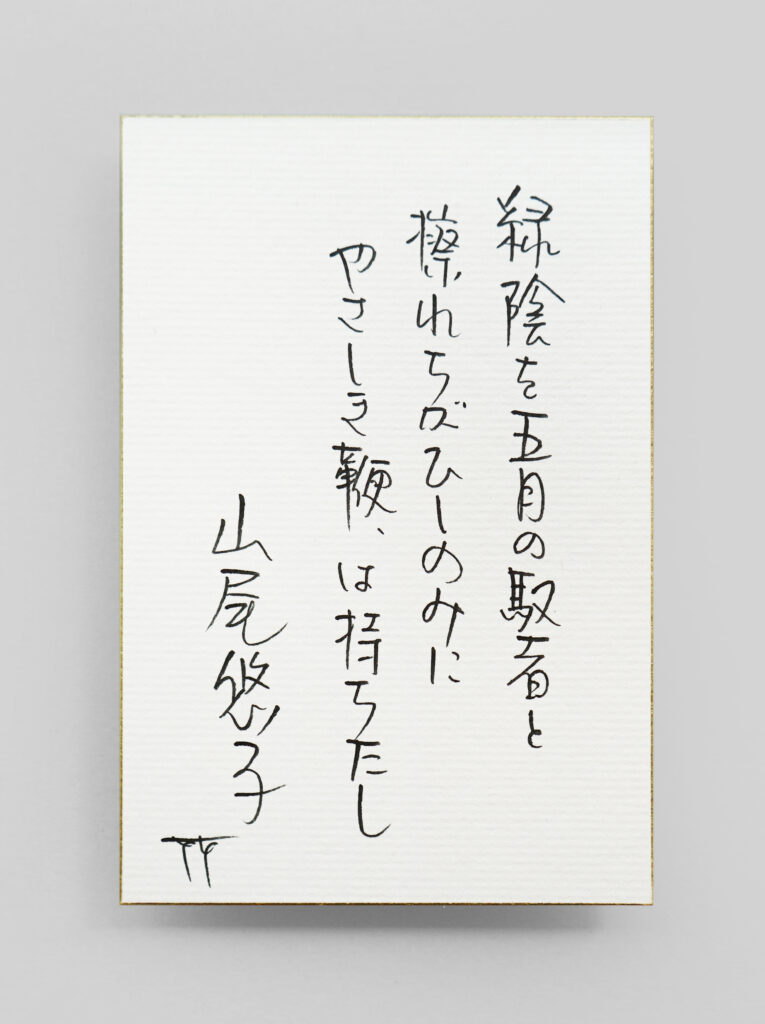 緑陰を五月の馭者と
擦れちがひしのみに
やさしき鞭、は持ちたし
山尾悠子